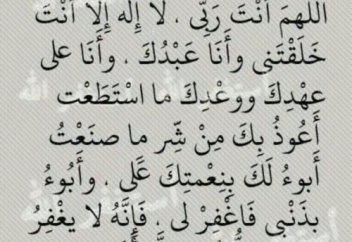 اللهمَ أَنْتَ رَبِّى ، لا إِله إِلا أَنْتَ
خَلَقْتَنى وأَنَا عَبْدُكَ ، وأَنَا على
عهْدِكَ ووعْدِكَ ما اسْتَطَعْت
أَعُوذُ بِكَ مِنْ شَِّر ما صنَعْتُ
أَبوءُ لَكَ بِنِعْمتِكَ عَلَى ، وأَبُوءُ
بذَنْبى فَاغْفِرْ لى ، فَإِنَّهُ لا يغْفِرُ